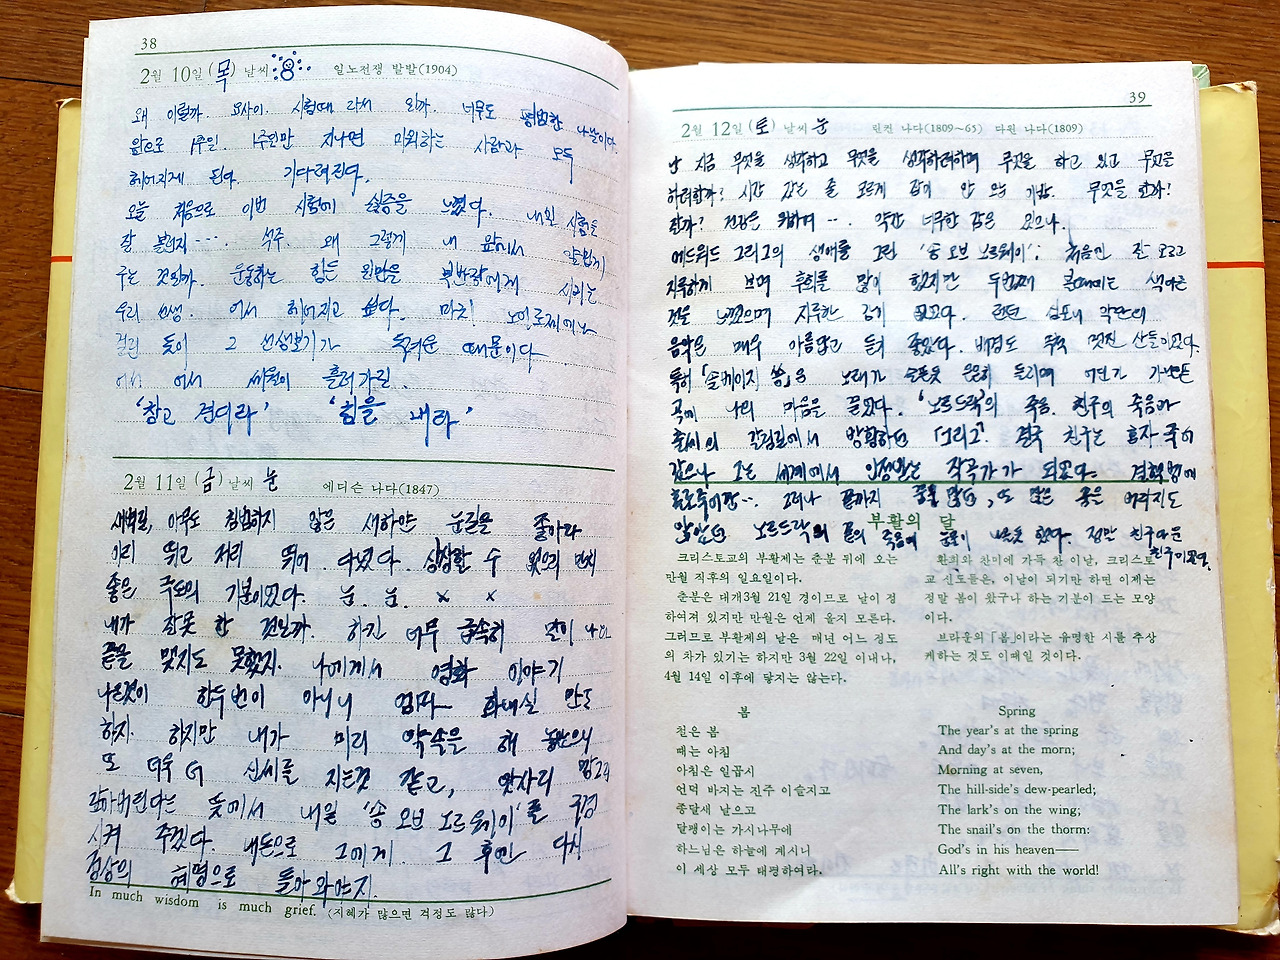 38
2월 10일 (목) 날씨 일노전쟁 발발(1904)
왜 이럴까. 요사이. 시험때 라서 일까. 너무도 평범한 나날이다.
앞으로 1주일. 1주일만 지나면 미워하는 사람과 모두
헤어지게 된다. 기다려진다.
오늘 처음으로 이번 시험에 싫증을 느꼈다. 내일 시험을
잘 볼런지····. 석주. 왜 그렇게 내 앞에서 얄밉게
구는 것일까. 운동하는 힘든 일만을 부반장에게 시키는
우리 선생. 어서 헤어지고 싶다. 마치 노이로제에나
걸린 듯이 그 선생보기가 두려운 때문이다
어서 어서 세월이 흘러가길.
'참고 견디라' '힘을 내라'
2월 11일 (금) 날씨 눈 에디슨 나다(1847)
새벽길, 아무도 침범하지 않은 새하얀 눈길을 좋아라
이리 뛰고 저리 뛰어 다녔다. 상상할 수 없으리 만치
좋은 기분이었다. 눈. 눈. × ×
내가 잘못 한 것일까. 하긴 너무 급속히 말이 나와
끝을 맺지도 못했지. 나에게서 영화 이야기
나온것이 한두번이 아니니 엄마가 화내실 만도
하지. 하지만 내가 미리 약속을 해 놓았으니
또 더욱 더 신세를 지는것 같고,
갚아버린다는 뜻에서 내일 '송 오브 노르웨이'를 구경
시켜 주겠다. 내돈으로 그에게. 그 후엔 다시
김상의 혜영으로 돌아와야지.
In much wisdom is much grief. (지혜가 많으면 걱정도 많다)
39
2월 12일 (토) 날씨 눈 린컨 나다(1809~65) 다윈 나다(1809)
난 지금 무엇을 생각하고 무엇을 생각하려하며 무엇을 하고 있고 무엇을
하려할까? 시간 가는 줄 모르게 잠이 안 오는 이밤. 무엇을 할까?
잘까? 건강을 위하여 ·· 약간 너무한 감은 있으나.
에드워드 그리그의 생애를 그린 '송 오브 노르웨이'; 처음엔 잘 모르고
지루하게 보며 후회를 많이 했지만 두번째 볼때에는 색다른
것을 느꼈으며 지루한 감이 없었다.
음악은 매우 아름답고 듣기 좋았다. 배경도 무척 멋진 산들이었다.
특히 「솔베이지 쏭」은 노래가 슬픈듯 은은히 들리며 어딘가 가냘픈
곡에 나의 마음을 끌었다. '노르드락'의 죽음. 친구의 죽음과
출세의 갈림길에서 방황하던 「그리그」. 결국 친구는 혼자 죽어
갔으나 그는 세계에서 인정받는 작곡가가 되었다. 결핵병에
그러나 끝까지
않았던 노르드락의 끝의 죽음에 눈물이 나올듯 했다. 정말 친구다운
친구이었어.
부활의 달
크리스토교의 부활제는 춘분 뒤에 오는
만월 직후의 일요일이다.
춘분은 대개3월 21일 경이므로 날이 정
하여져 있지만 만월은 언제 올지 모른다.
그러므로 부활제의 날은 매년 어느 정도
의 차가 있기는 하지만 3월 22일 이내나,
4월 14일 이후에 닿지는 않는다.
환희와 찬미에 가득 찬 이날, 크리스토
교 신도들은, 이날이 되기만 하면 이제는
정말 봄이 왔구나 하는 기분이 드는 모양
이다.
브라운의 「봄」이라는 유명한 시를 추상
케하는 것도 이때일 것이다.
봄
철은 봄
때는 아침
아침은 일곱시
언덕 바지는 진주 이슬지고
종달새 날으고
달팽이는 가시나무에
하느님은 하늘에 계시니
이 세상 모두 태평하여라.
Spring
The year's at the spring
And day's at the morn;
Morning at seven,
The hill-side's dew-pearled;
The lark's on the wing;
The snail's on the thorm:
God's in his heaven──
All's right with the world!